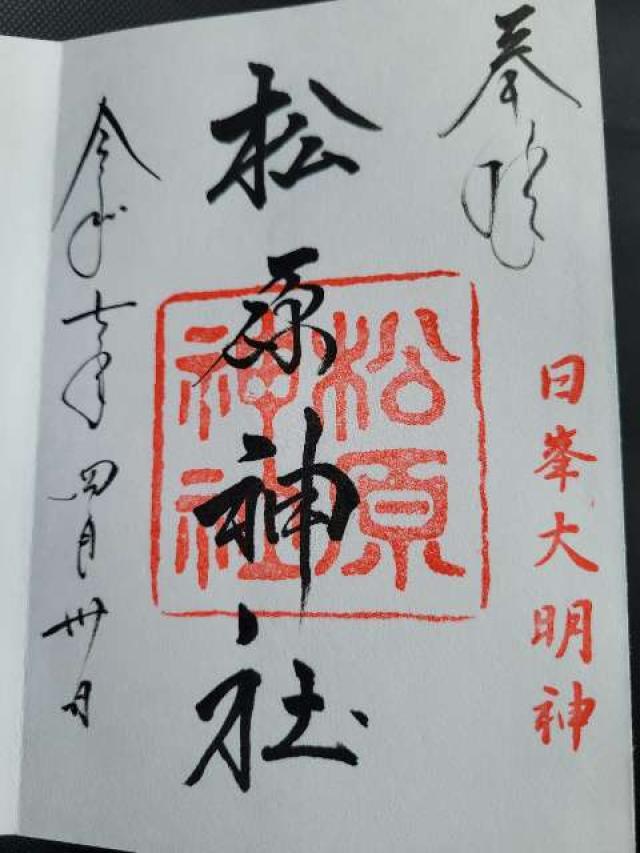 奉拝
日峯大明神
松原神社
松原神社
令和七年四月卅日